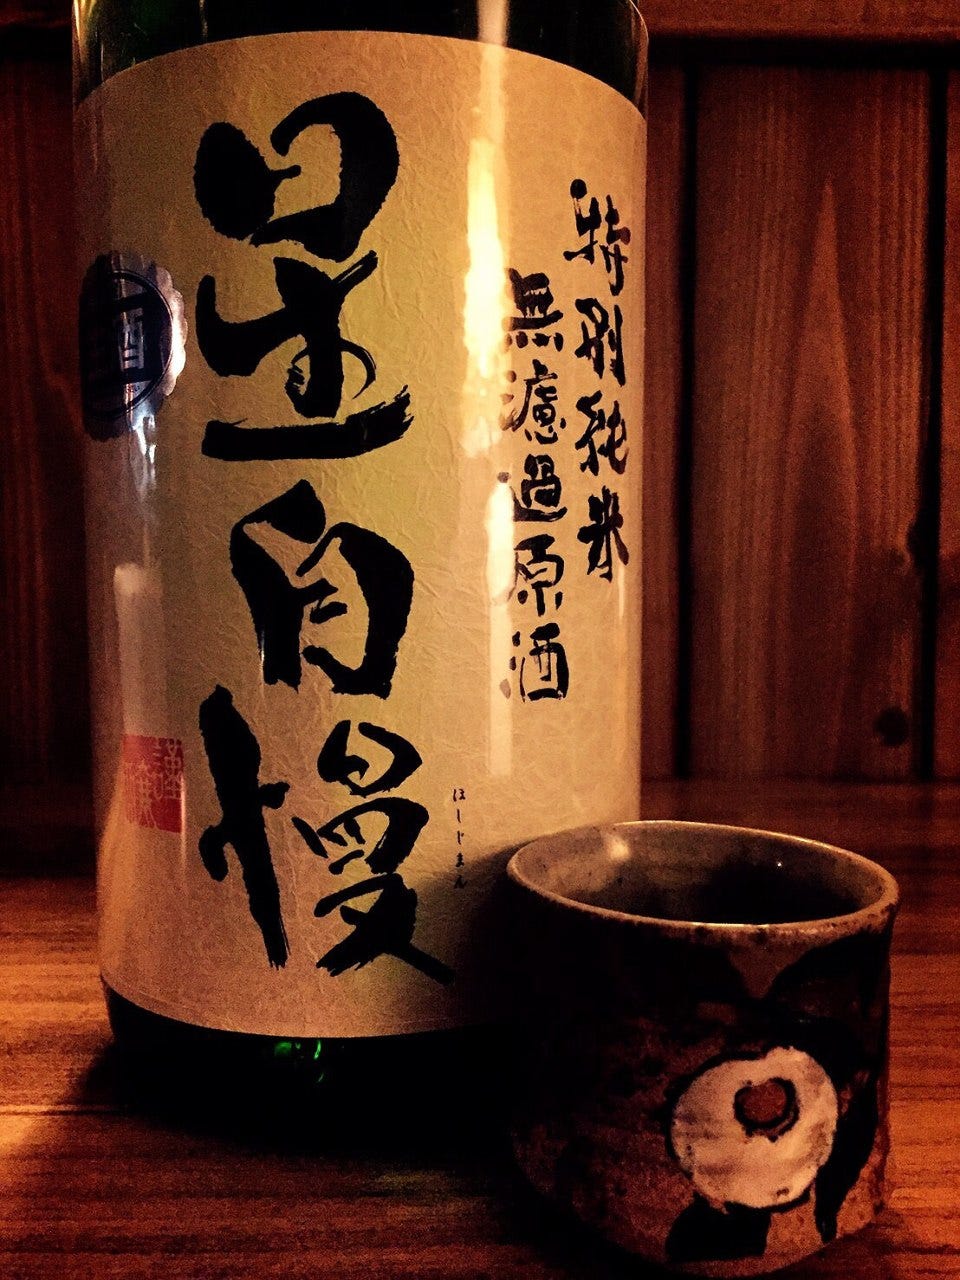 特別純米
無濾過原酒
星自慢
ほしじまん
酒